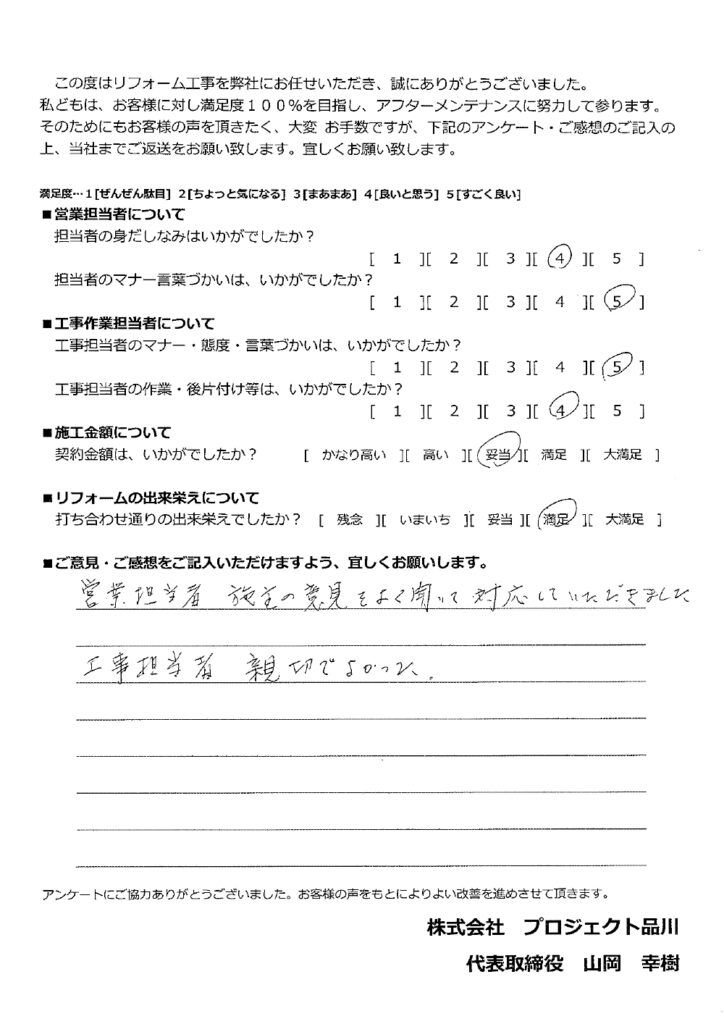 この度はリフォーム工事を弊社にお任せいただき、誠にありがとうございました。
私どもは、お客様に対し満足度１００％を目指し、アフターメンテナンスに努力して参ります。
そのためにもお客様の声を頂きたく、大変 お手数ですが、下記のアンケート・ご感想のご記入の
上、当社までご返送をお願い致します。宜しくお願い致します。
満足度…１[ぜんぜん駄目] ２[ちょっと気になる] ３[まあまあ] ４[良いと思う] ５[すごく良い]
■営業担当者について
担当者の身だしなみはいかがでしたか？
[ 1 ][ 2 ][ 3 ][ 4 ][ 5 ]
担当者のマナー言葉づかいは、いかがでしたか？
[ 1 ][ 2 ][ 3 ][ 4 ][ 5 ]
■工事作業担当者について
工事担当者のマナー・態度・言葉づかいは、いかがでしたか？
[ 1 ][ 2 ][ 3 ][ 4 ][ 5 ]
工事担当者の作業・後片付け等は、いかがでしたか？
[ 1 ][ 2 ][ 3 ][ 4 ][ 5 ]
■施工金額について
契約金額は、いかがでしたか？ [ かなり高い ][ 高い ][ 妥当 ][ 満足 ][ 大満足 ]
■リフォームの出来栄えについて
打ち合わせ通りの出来栄えでしたか？ [ 残念 ][ いまいち ][ 妥当 ][ 満足 ][ 大満足 ]
■ご意見・ご感想をご記入いただけますよう、宜しくお願いします。
営業担当者 施主の意見をよく聞いて対応していただきました
工事担当者 親切でよかった。
アンケートにご協力ありがとうございました。お客様の声をもとによりよい改善を進めさせて頂きます。
株式会社 プロジェクト品川
代表取締役 山岡 幸樹